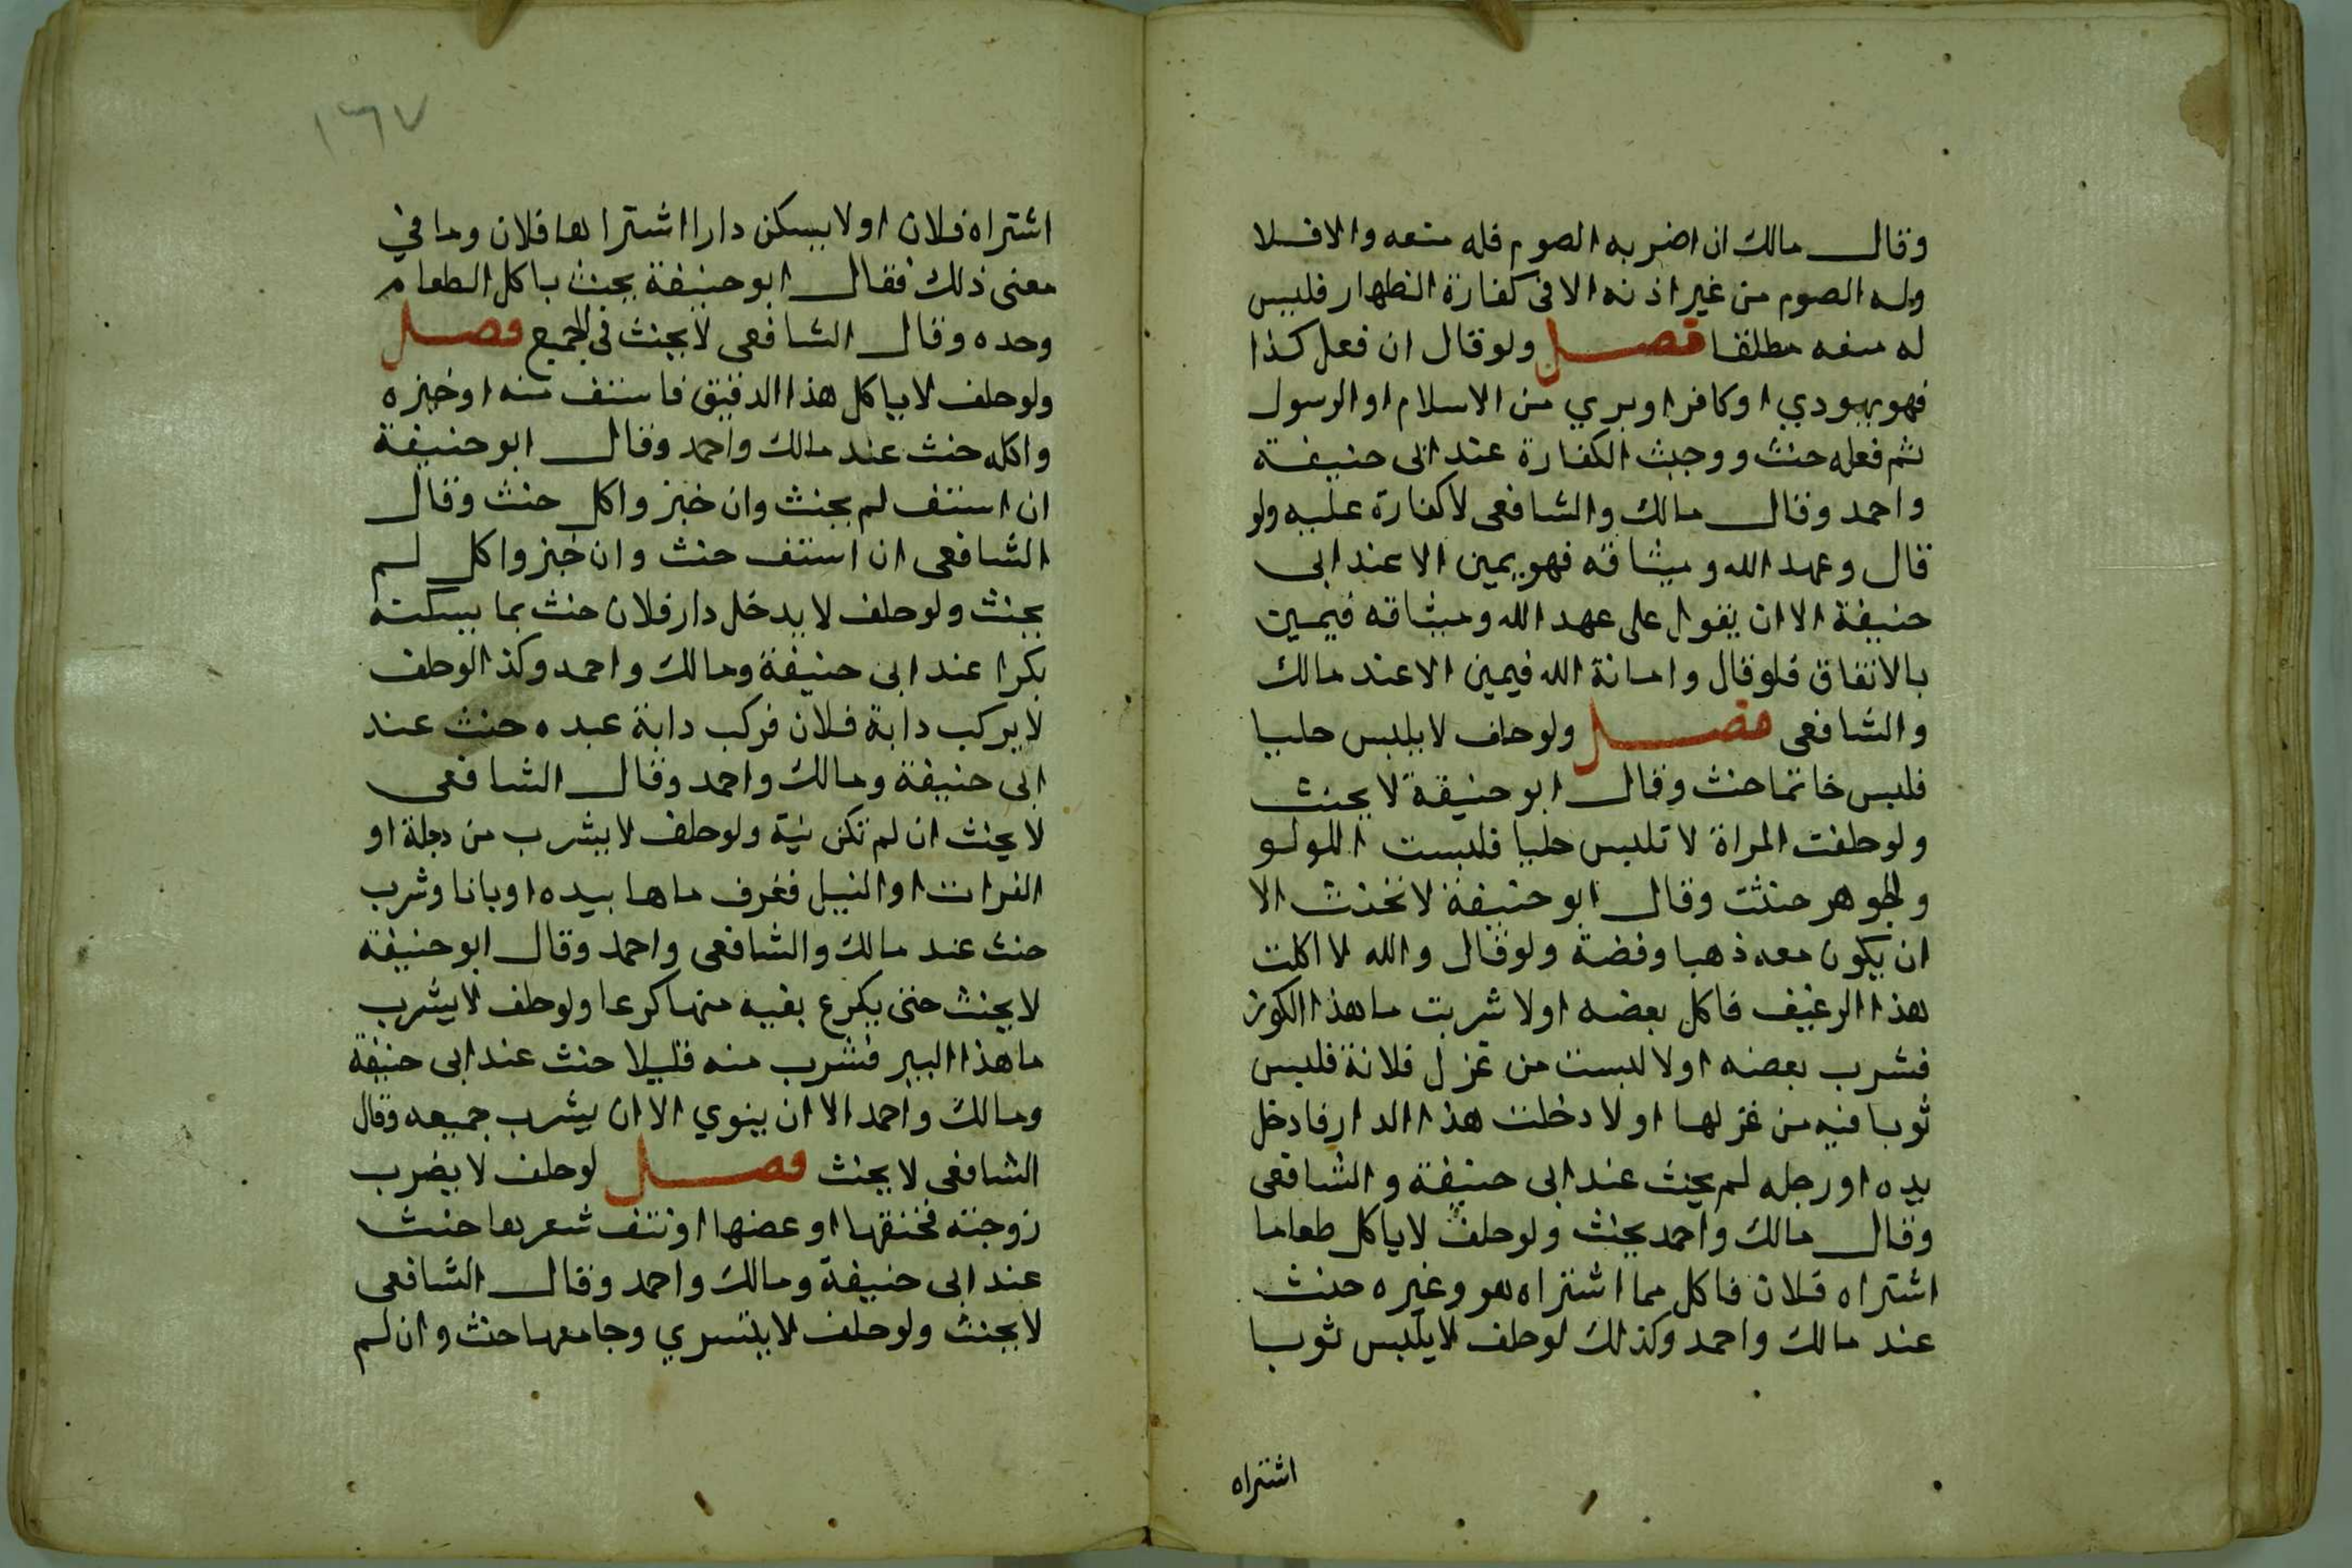 وقال مالك ان اضر به الصوم فله منعه والا فلا
وله الصوم من غير اذنه الا في كفارة الظهار فليس
له منعه مطلقا فصل ولو قال ان فعل كذا
فهو يهودي او كافر او بري من الاسلام او الرسول
ثم فعله حنث ووجبت الكفارة عند ابى حنيفة
واحمد وقال مالك والشافعى لا كفارة عليه ولو
قال وعهد الله وميثاقه فهو يمين الا عند ابى
حنيفة الا ان يقول على عهد الله وميثاقه فيمين
بالاتفاق فلو قال وامانة الله فيمين الا عند مالك
والشافعى فصل ولو حلف لا يلبس حليا
فلبس خاتما حنث وقال ابو حنيفة لا يحنث
ولو حلفت المراة لا تلبس حليا فلبست اللولو
والجوهر حنثت وقال ابو حنيفة لا تحنث الا
ان يكون معه ذهبا وفضة ولو قال والله لا اكلت
هذا الرغيف فاكل بعضه اولا شربت ما هذا الكوز
فشرب بعضه اولا لبست من غزل فلانة فلبس
ثوبا فيه من غزلها او لا دخلت هذا الدار فادخل
يده او رجله لم يحنث عند ابى حنيفة والشافعى
وقال مالك واحمد يحنث ولو حلف لا ياكل طعاما
اشتراه فلان فاكل مما اشتراه هو وغيره حنث
عند مالك واحمد وكذلك لو حلف لا يلبس ثوبا
اشتراه
١٦٧
اشتراه فلان او لا يسكن دارا اشتراها فلان وما في
معنى ذلك فقال ابو حنيفة يحنث باكل الطعام
وحده وقال الشافعى لا يحنث فى الجميع فصل
ولو حلف لا ياكل هذا الدقيق فاستف منه او خبزه
واكله حنث عند مالك واحمد وقال ابو حنيفة
ان استف لم يحنث وان خبز واكل حنث وقال
الشافعى ان استف حنث وان خبز واكل لم
يحنث ولو حلف لا يدخل دار فلان حنث بما يسكنه
بكرا عند ابى حنيفة ومالك واحمد وكذا لو حلف
لا يركب دابة فلان فركب دابة عبده حنث عند
ابى حنيفة ومالك واحمد وقال الشافعى
لا يحنث ان لم تكن نية ولو حلف لا يشرب من دجلة او
الفرات او النيل فغرف ماها بيده او بانا وشرب
حنث عند مالك والشافعى واحمد وقال ابو حنيفة
لا يحنث حتى يكرع بفيه منها كرعا ولو حلف لا يشرب
ما هذا البير فشرب منه قليلا حنث عند ابى حنيفة
ومالك واحمد الا ان ينوي الا ان يشرب جميعه وقال
الشافعى لا يحنث فصل لو حلف لا يضرب
زوجته فخنقها او عضها او نتف شعرها حنث
عند ابى حنيفة ومالك واحمد وقال الشافعى
لا يحنث ولو حلف لا يتسري وجامعها حنث وان لم